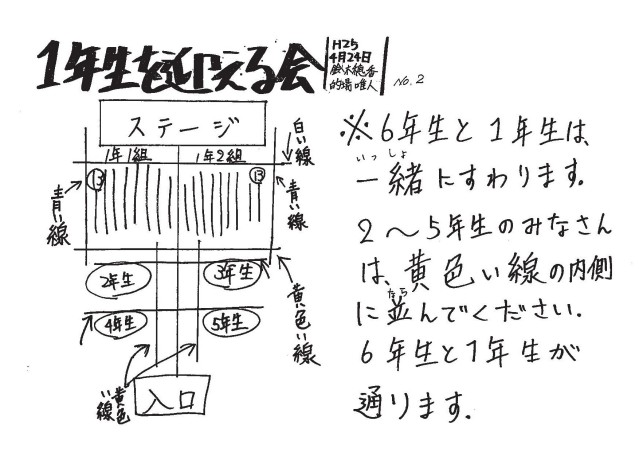 1年生を迎える会
H25
4月24日
鈴木穂香
的場唯人
No.2
ステージ
1年1組
1年2組
白い線
⑬
⑬
青い線
青い線
2年生
3年生
4年生
5年生
黄色い線
黄色い線
入口
※6年生と1年生は
いっしょ
一緒にすわります。
2〜5年生のみなさん
は、黄色い線の内側
なら
に並んでください.
6年生と1年生が
通ります.